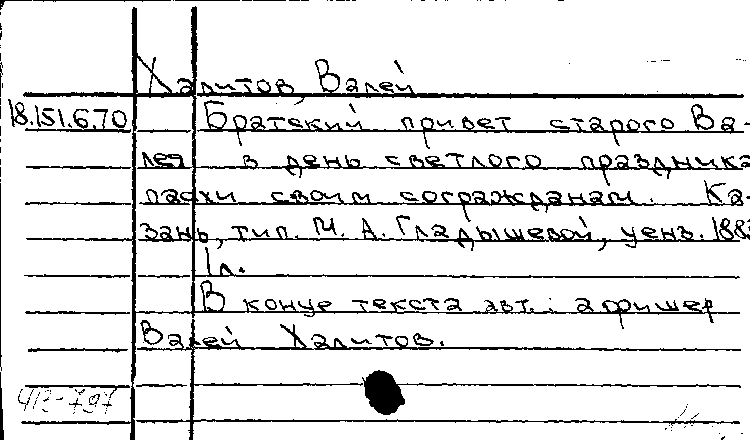 Халитов, Валей
18.151.6.70 Братский привет старого Ва-
лея в день светлого праздника
пасхи своим согражданам. Ка-
зань, тип. М. А. Гладышевой, ценз. 188
1 л.
В конце текста авт.: афишер
Валей Халитов.